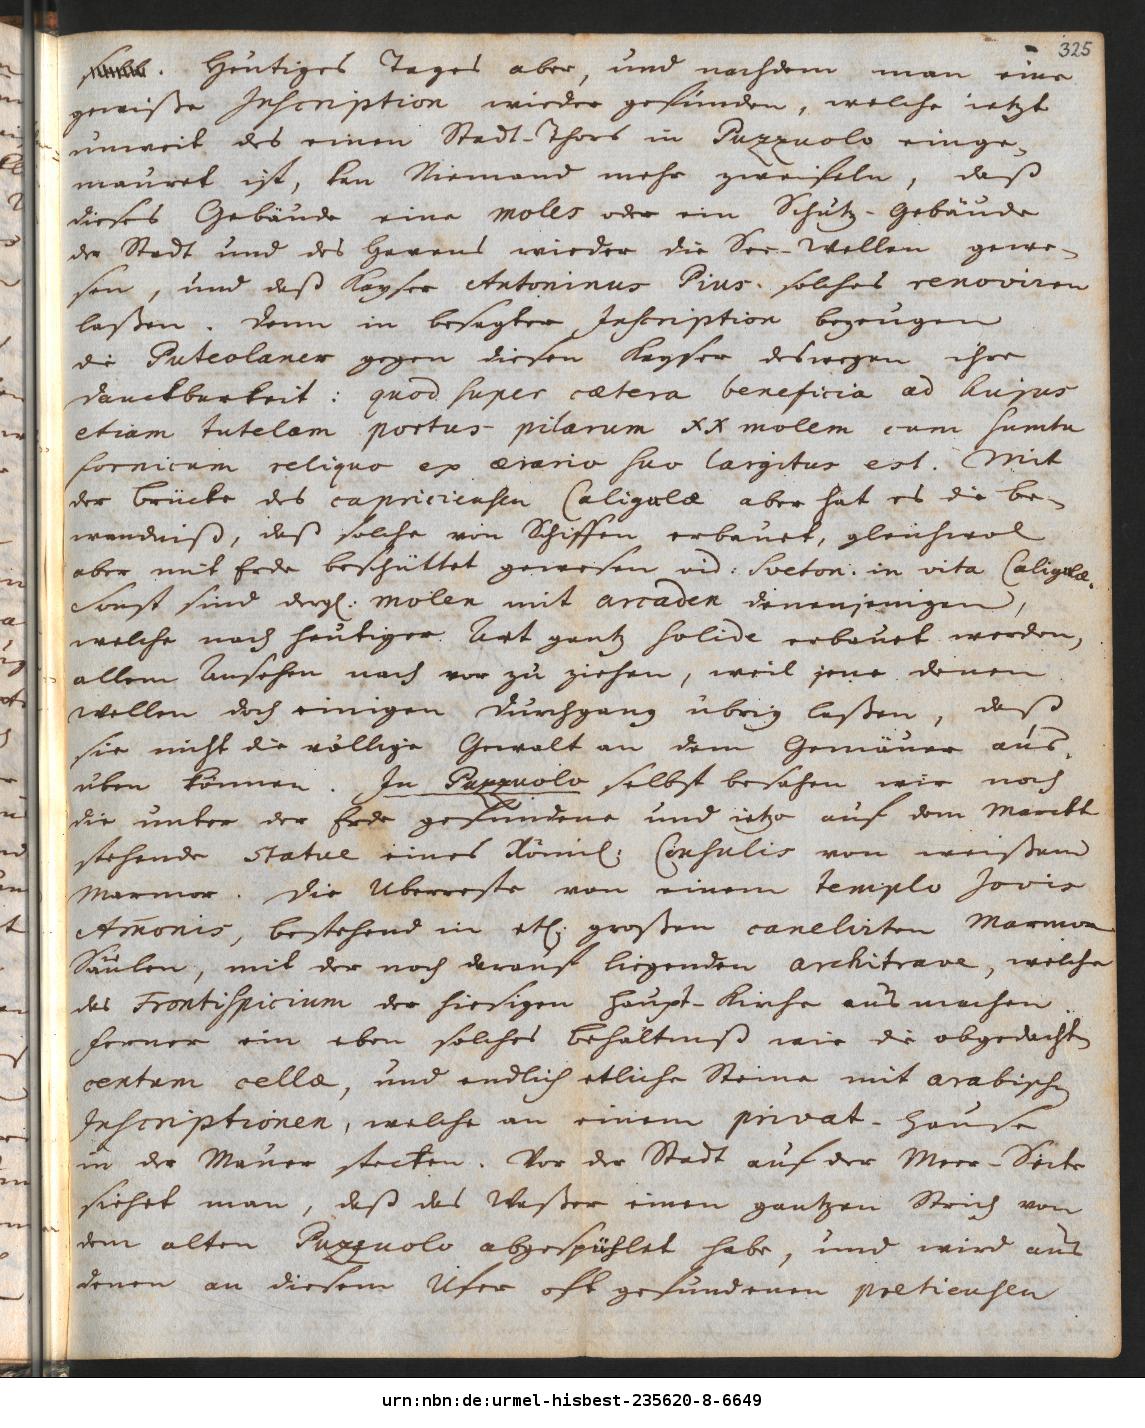 325
Heutiges Tages aber, und nachdem man eine
gewiße Inscription wieder gefunden, welche ietzt
unweit des einen Stadt-Thors in Puzzuolo einge-
mauret ist, kan Niemand mehr zweifeln, daß
dieses Gebäude eine moles oder ein Schutz-Gebäude
der Stadt und des Havens wieder die See-Wellen gewe-
sen, und daß Kayser Antoninus Pius. solches renoviren
laßen. Denn in besagter Inscription bezeugen
die Puteolaner gegen diesen Kayser deswegen ihre
Danckbarkeit: quod super cætera beneficia ad hujus
etiam tutelam portus pilarum XX molem cum sumtu
fornicum reliquo ex ærario suo largitus est. Mit
der Brücke des capricieusen Caligulæ aber hat es die be-
wandniß, daß solche von Schiffen erbauet, gleichwol
aber mit Erde beschüttet gewesen vid: Sveton. in vita Caligulæ.
Sonst sind dergl. molen mit arcaden denenjenigen,
welche nach heutiger Art gantz solide erbauet werden,
allem Ansehen nach vor zu ziehen, weil jene denen
Wellen doch einigen Durchgang übrig laßen, daß
sie nicht die völlige Gewalt an dem Gemäuer aus-
üben können. In Puzzuolo selbst besahen wir noch
die unter der Erde gefundene und ietzo auf dem Marckt
stehende Statue eines Römis: Consulis von weißem
Marmor. Die Uberreste von einem templo Jovis
Am̄onis, bestehend in etl: großen canelirten Marmor
Säulen, mit der noch darauf liegenden architrave, welche
das Frontispicium der hiesigen Haupt-Kirche ausmachen
ferner ein eben solches Behältniß wie die obgedachte
centum cellæ, und endlich etliche Steine mit arabischen
Inscriptionen, welche an einem privat-Hause
in der Mauer stecken. Vor der Stadt auf der Meer-Seite
siehet man, daß das Waßer einen gantzen Strich von
dem alten Puzzuolo abgespühlet habe, und wird aus
denen an diesem Ufer oft gefundenen pretieusen
urn:nbn:de:urmel-hisbest-235620-8-6649